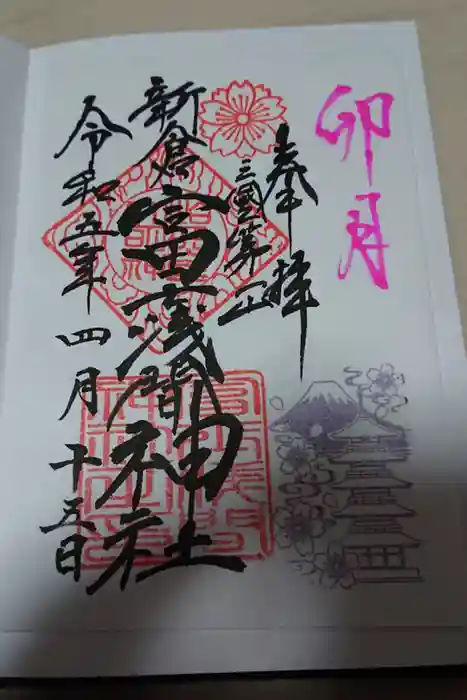 卯月
奉拝
三國第一
新倉
富士浅間神社
令和五年四月十五日